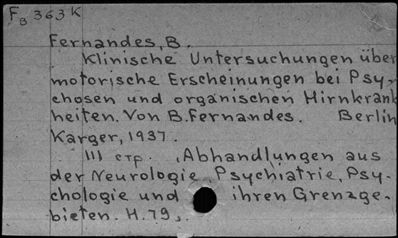 FB 363 K
Fernandes, B.
Klinische Untersuchungen über
motorische Erscheinungen bei Psy-
chosen und organischen Hirnkrank
heiten. Von B. Fernandes. Berlin
Karger, 1937.
111 стр. „Abhandlungen aus
der Neurologie, Psychiatrie, Psy-
chologie und ihren Grenzge-
bieten. H. 79„.